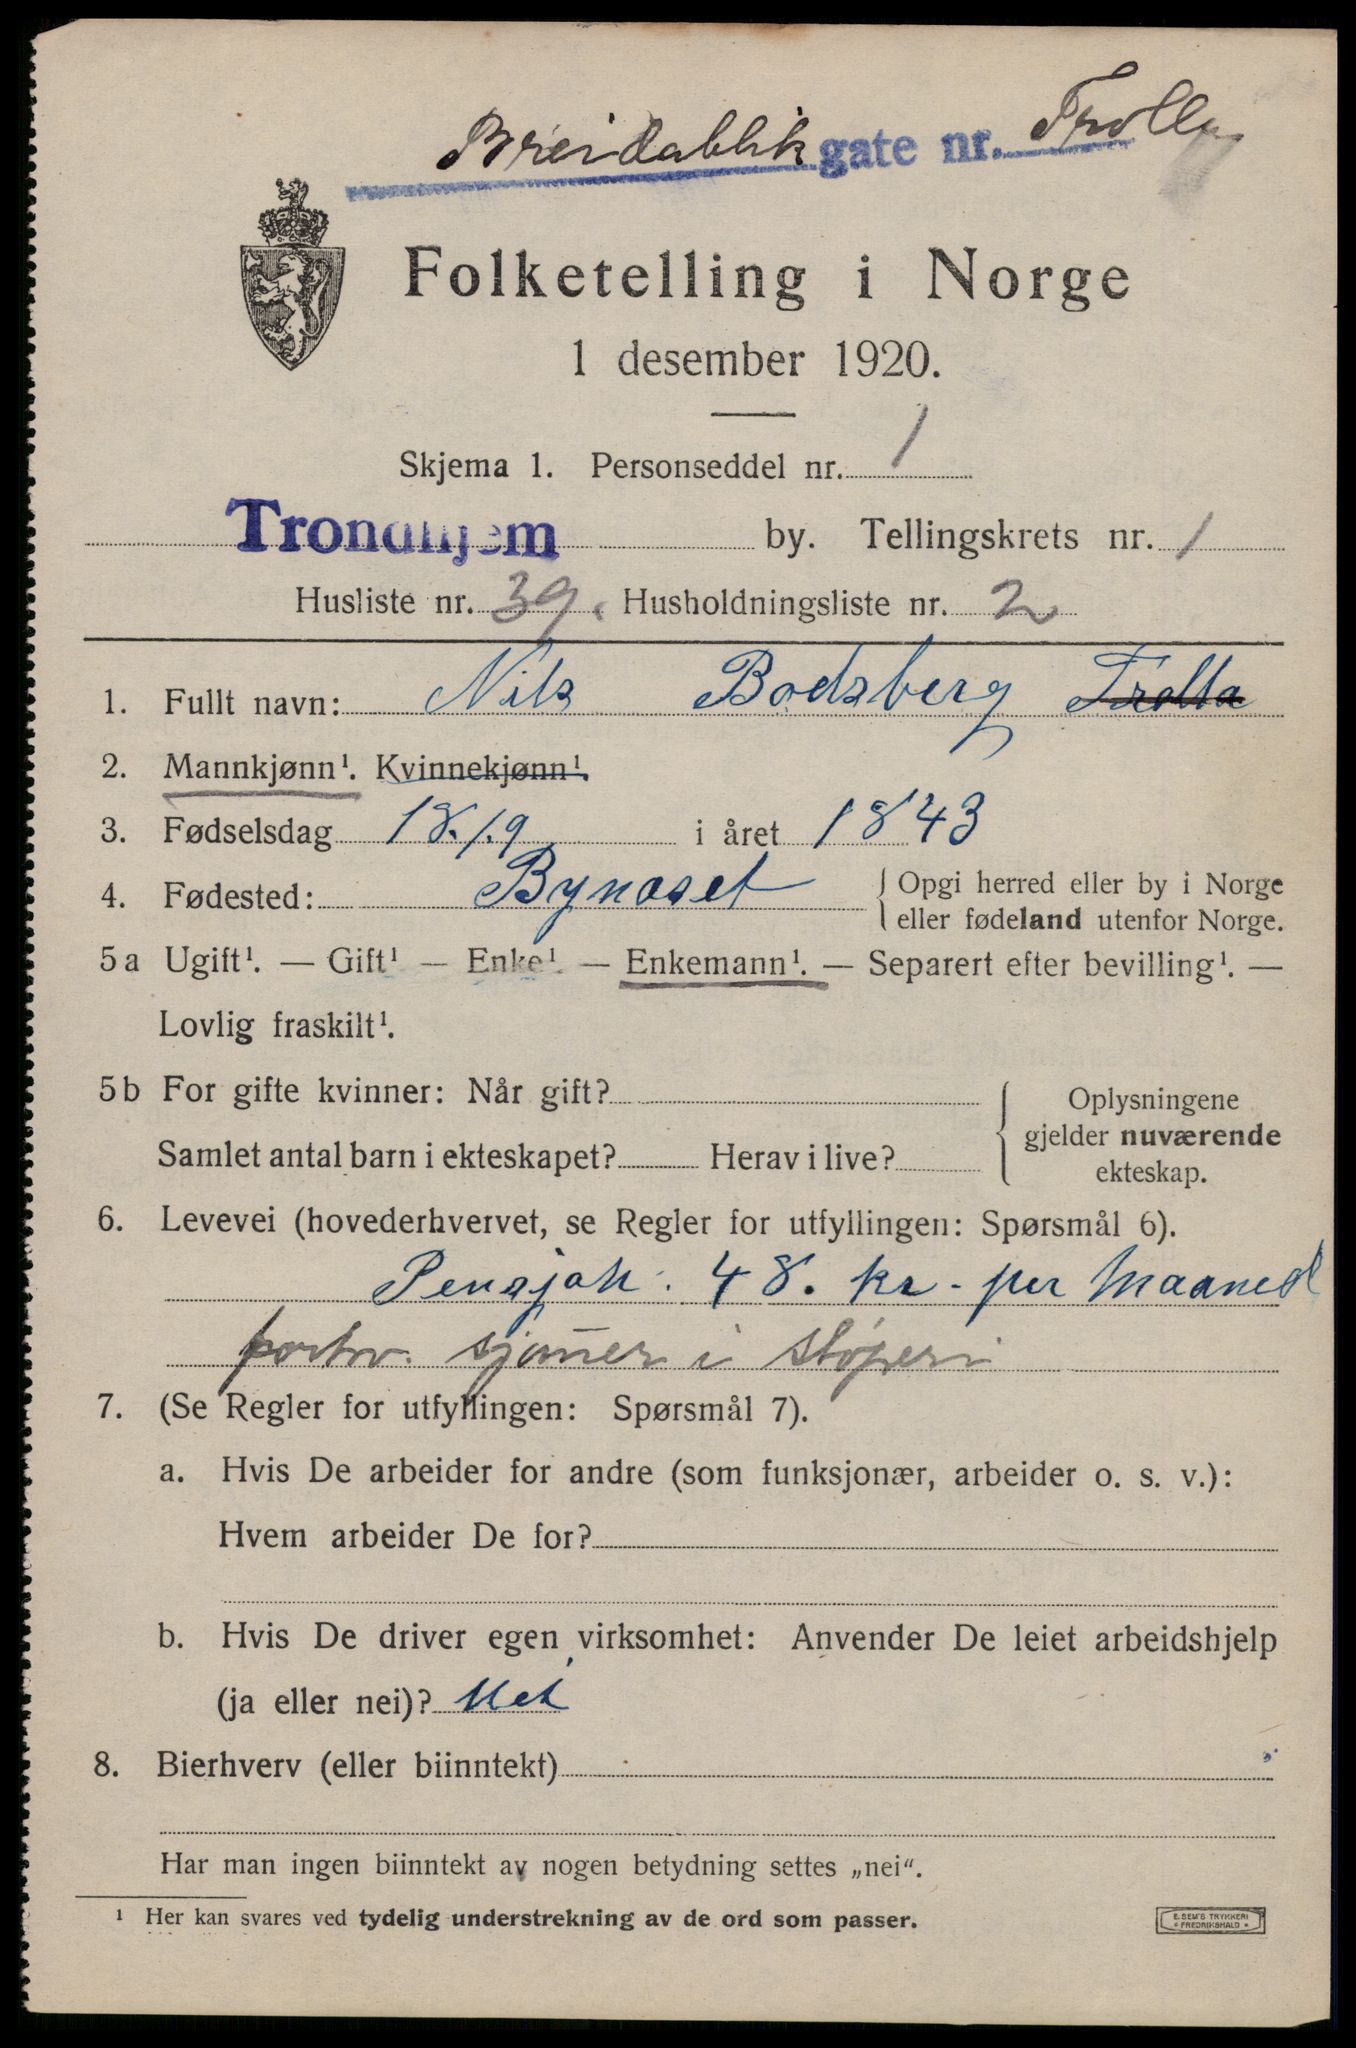 Breidablik gate nr. Trolla
Folketelling i Norge
1 desember 1920.
Skjema 1. Personseddel nr. 1
Trondhjem by. Tellingskrets nr. 1
Husliste nr. 39. Husholdningsliste nr. 2
1. Fullt navn: Nils Bodsberg Trolla
2. Mannkjønn¹. Kvinnekjønn¹.
3. Fødselsdag 18/9 i året 1843
4. Fødested: Bynæset { Opgi herred eller by i Norge
eller fødeland utenfor Norge.
5 a Ugift¹. — Gift¹ — Enke¹. — Enkemann¹. — Separert efter bevilling¹. —
Lovlig fraskilt¹.
5 b For gifte kvinner: Når gift?
Samlet antal barn i ekteskapet? Herav i live?
Oplysningene
gjelder nuværende
ekteskap.
6. Levevei (hovederhvervet, se Regler for utfyllingen: Spørsmål 6).
Pensjon. 48. kr. per Maaned
forhv. i støperi
7. (Se Regler for utfyllingen: Spørsmål 7).
a. Hvis De arbeider for andre (som funksjonær, arbeider o. s. v.):
Hvem arbeider De for?
b. Hvis De driver egen virksomhet: Anvender De leiet arbeidshjelp
(ja eller nei)? Nei
8. Bierhverv (eller biinntekt)
Har man ingen biinntekt av nogen betydning settes „nei“.
¹ Her kan svares ved tydelig understrekning av de ord som passer.
E. SEM'S TRYKKERI
FREDRIKSHALD